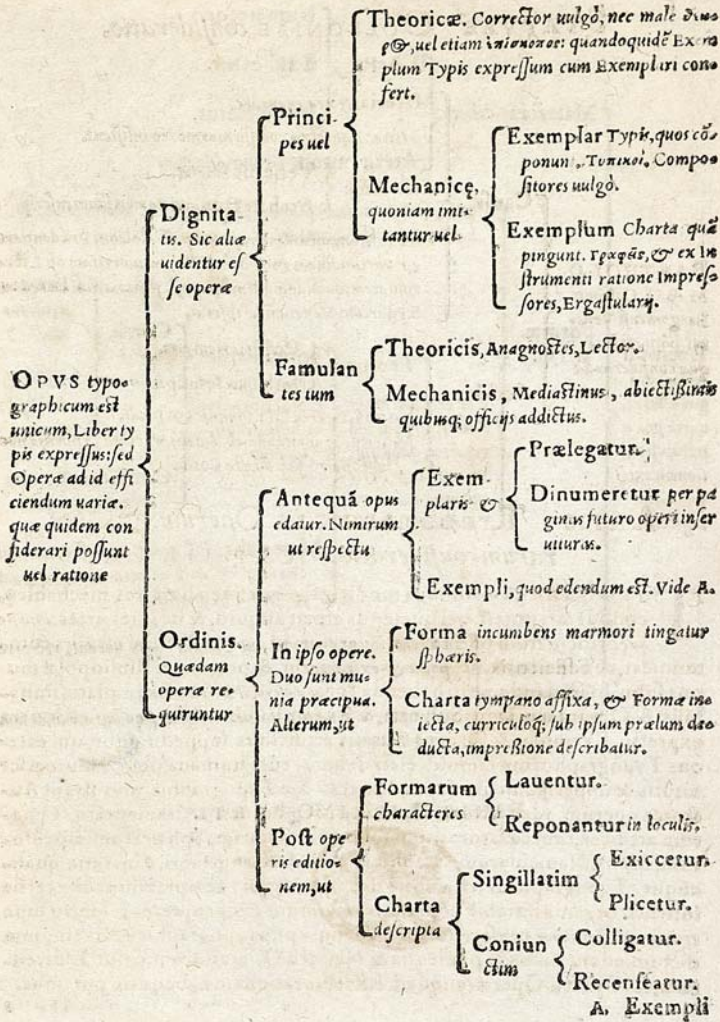 OPVS typo-
graphicum est
unicum, Liber ty
pis expressus: sed
Operæ ad id effi
ciendum variæ.
quæ quidem con
siderari possunt
uel ratione
Dignita-
tis. Sic aliæ
uidentur es
se operæ
Princi-
pes uel
Theoricæ. Corrector uulgò, nec male
uel etiam ἐπίσκοπος: quandoquidē Exem
plum Typis expressum cum Exemplari con-
fert.
Mechanicę,
quoniam imi-
tantur uel
Exemplar Typis, quos cō-
ponunt, Τυπικοὶ, Compo-
sitores uulgò.
Exemplum Charta quā
pingunt. Γραφεῖς, & ex In
strumenti ratione Impres-
sores, Ergastularij.
Famulan
tes tum
Theoricis, Anagnostes, Lector.
Mechanicis, Mediastinus, abiectißimis
quibusq; officijs addictus.
Ordinis.
Quædam
operæ re-
quiruntur
Antequā opus
edatur. Nimirum
ut respectu
Exem-
plaris &
Prælegatur.
Dinumeretur per pa
ginas futuro operi inser
uituras.
Exempli, quod edendum est. Vide A.
In ipso opere.
Duo sunt mu-
nia præcipua.
Alterum, ut
Forma incumbens marmori tingatur
sphæris.
Charta tympano affixa, & Formæ in-
iecta, curriculoq; sub ipsum prælum de-
ducta, impreßione describatur.
Post ope
ris editio-
nem, ut
Formarum
characteres
Lauentur.
Reponantur in loculis.
Charta
descripta
Singillatim
Exiccetur.
Plicetur.
Coniun
ctim
Colligatur.
Recenseatur.
A. Exempli